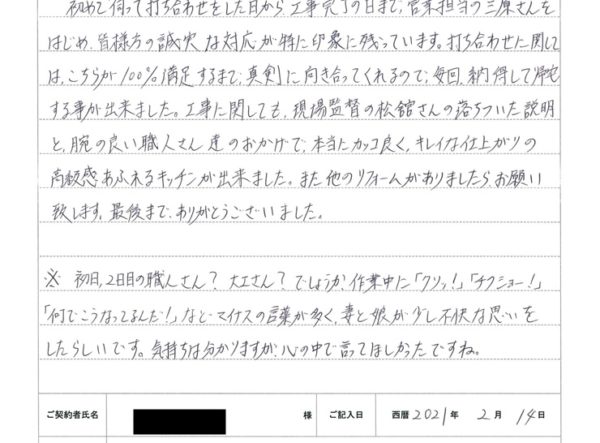 初めて伺って打ち合わせをした日から、工事完了の日まで、営業担当の三原さんを
はじめ、皆様方の誠実な対応が特に印象に残っています。打ち合わせに関して
は、こちらが100%満足するまで、真剣に向き合ってくれるので、毎回、納得して帰宅
する事が出来ました。工事に関しても、現場監督の松舘さんの落ちついた説明
と、腕の良い職人さん達のおかげで、本当にカッコ良く、キレイな仕上がりの
高級感あふれるキッチンが出来ました。また他のリフォームがありましたら、お願い
致します。最後まで、ありがとうございました。
※ 初日、2日目の職人さん?大工さん?でしょうか、作業中に「クソッ!」「チクショー!」
「何でこうなってるんだ!」などマイナスの言葉が多く、妻と娘が少し不快な思いを
したらしいです。気持ちは分かりますが、心の中で言ってほしかったですね。
ご契約者氏名 様 ご記入日 西暦 2021年 2月 14日